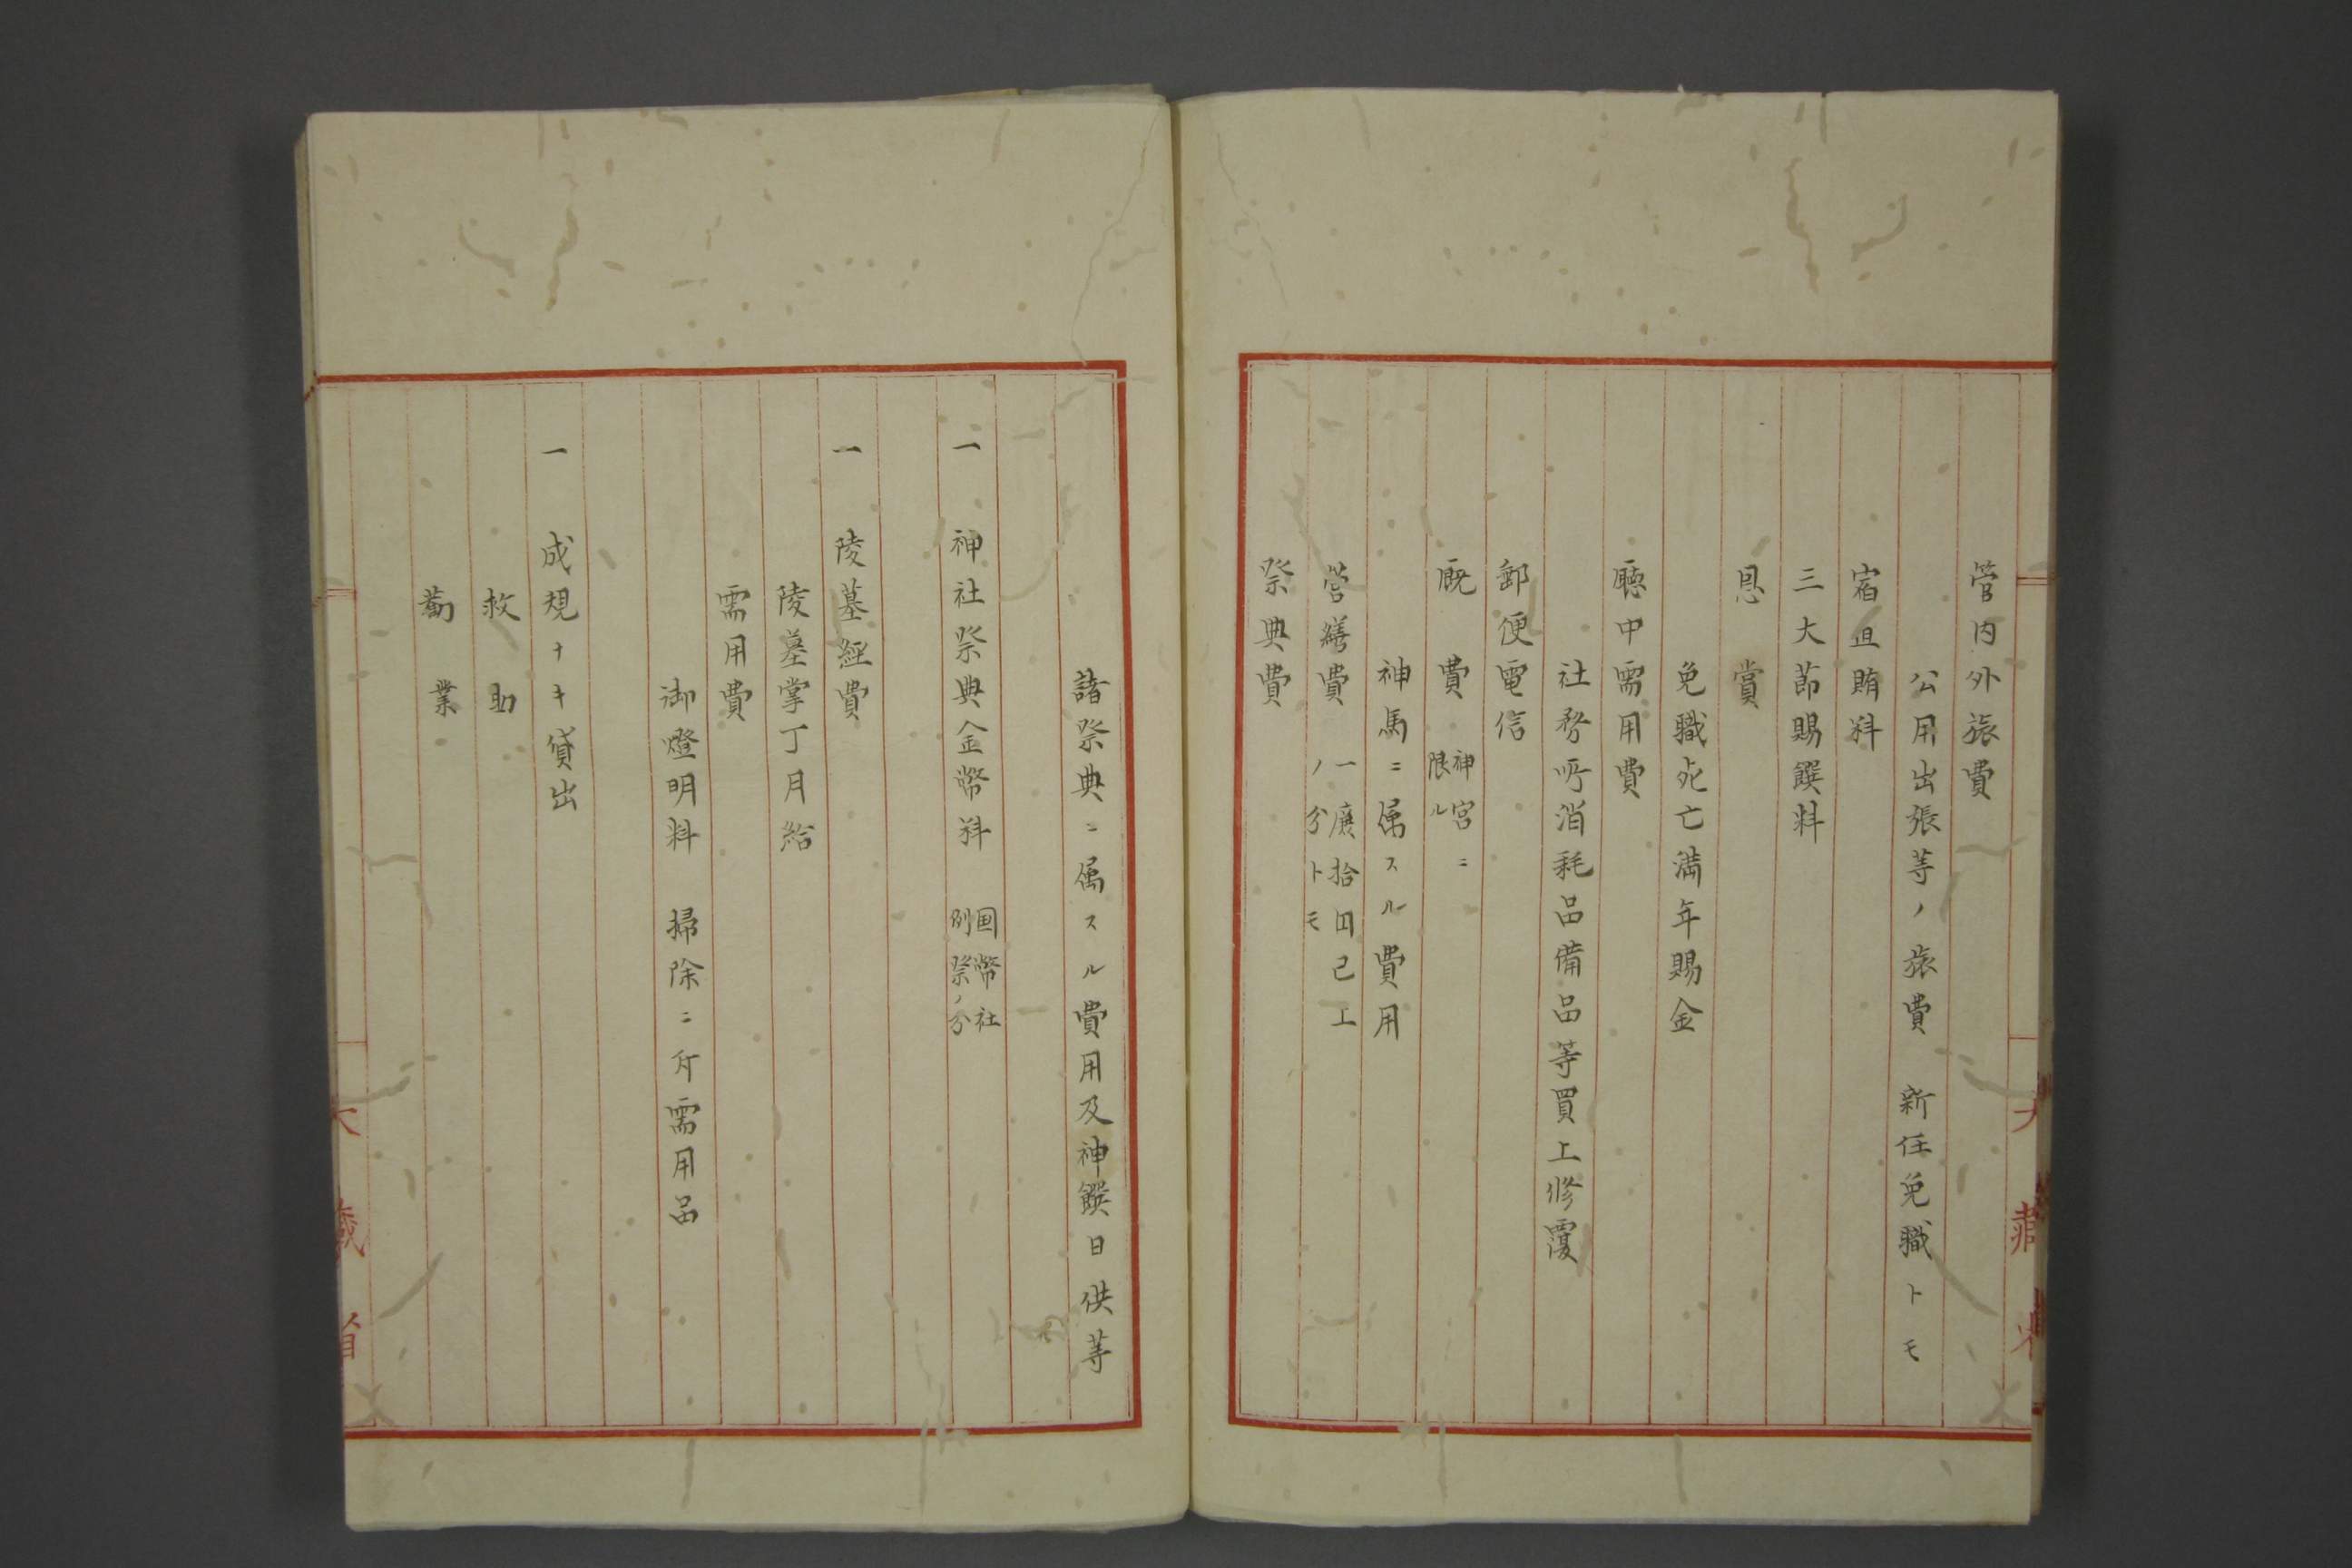 管内外旅費
公用出張等ノ旅費　新任免職トモ
宿直賄料
三大節賜饌料
恩　賞
免職死亡満年賜金
聴中需用費
社務所消耗品備品等買上修覆
郵便電信
厩　費　神宮ニ
限ル
神馬ニ属スル費用
営繕費　一廉拾円已上
ノ分トモ
祭典費
諸祭典ニ属スル費用及神饌日供等
一　神社祭典金幣料　国幣社
例祭ノ分
一　陵墓経費
陵墓掌丁月給
需用費
御燈明料　掃除ニ付需用品
一　成規ナキ貸出
救　助
勧　業
大蔵省